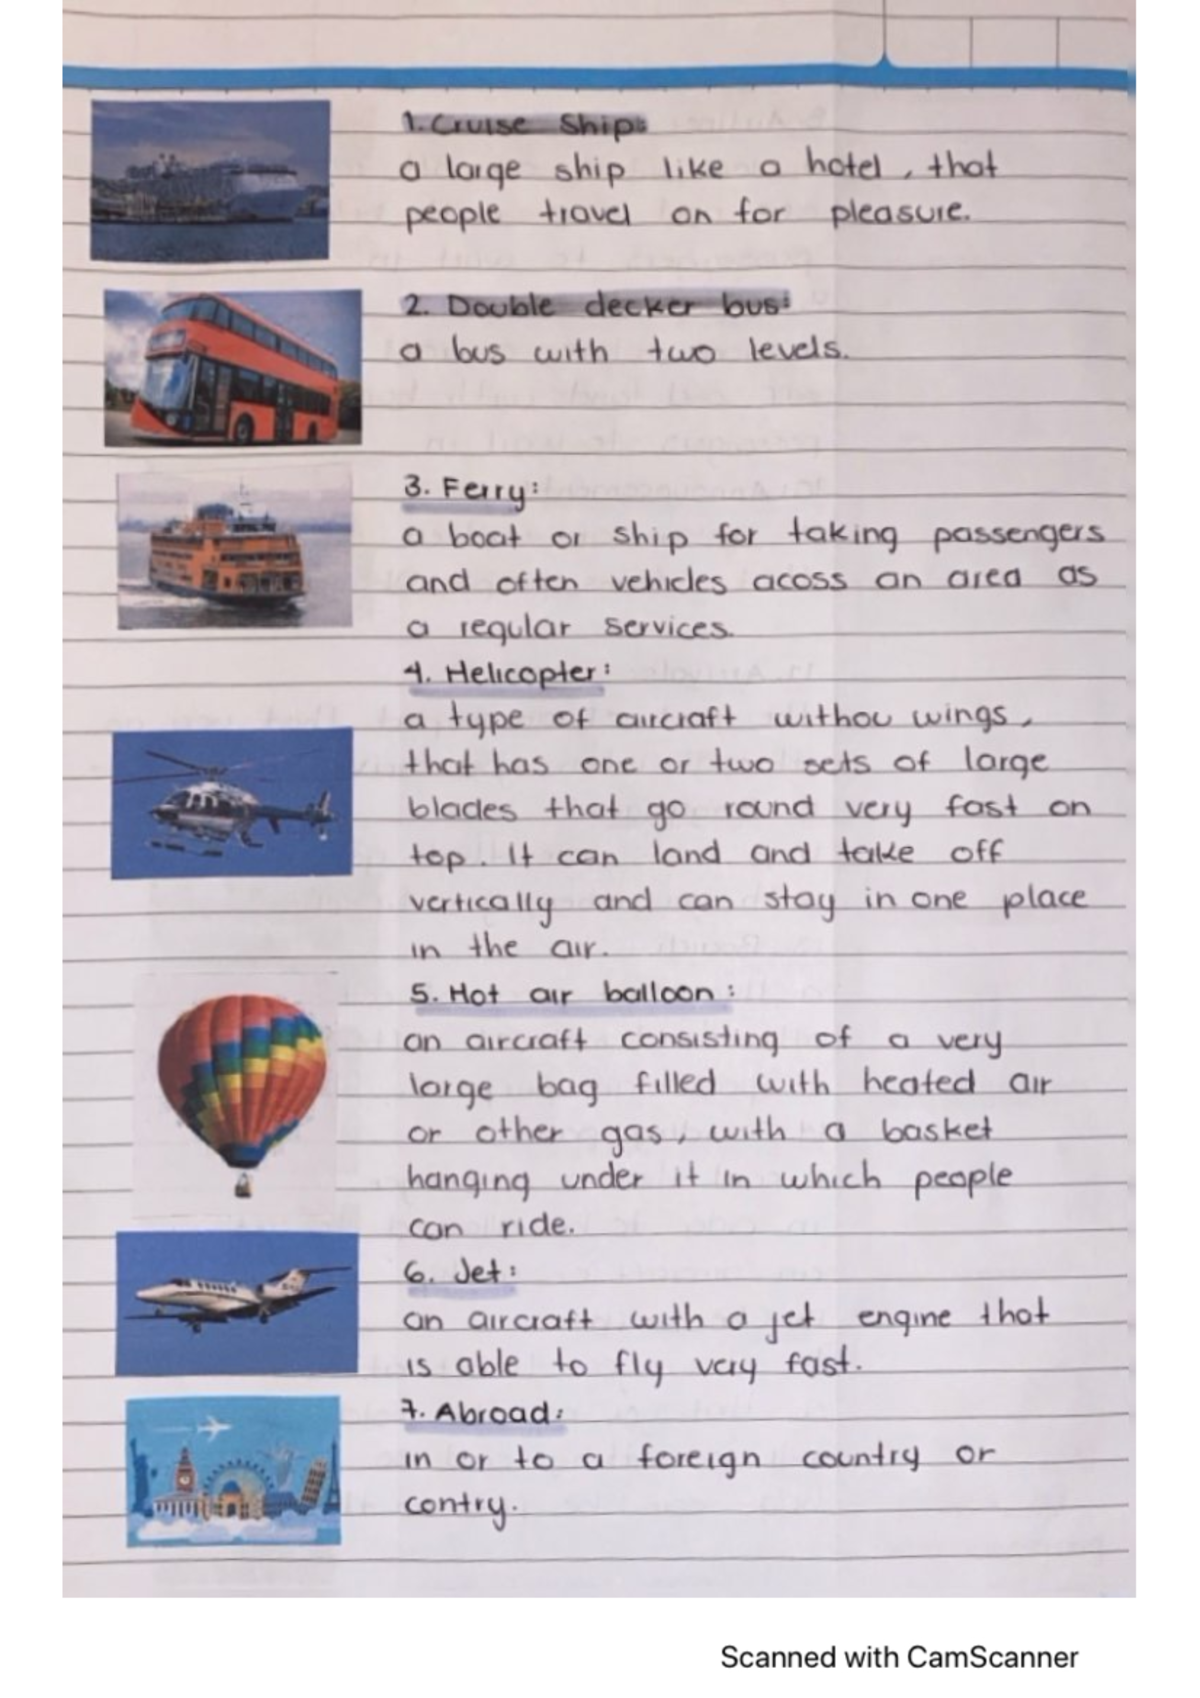 1. Cruise Ship:
a large ship like a hotel, that
people travel on for pleasure.
2. Double decker bus:
a bus with two levels.
3. Ferry:
a boat or ship for taking passengers
and often vehicles acoss an area as
a regular services.
4. Helicopter:
a type of aircraft withou wings,
that has one or two sets of large
blades that go round very fast on
top. It can land and take off
vertically and can stay in one place
in the air.
5. Hot air balloon:
an aircraft consisting of a very
large bag filled with heated air
or other gas, with a basket
hanging under it in which people
can ride.
6. Jet:
an aircraft with a jet engine that
is able to fly very fast.
7. Abroad:
in or to a foreign country or
contry.
Scanned with CamScanner